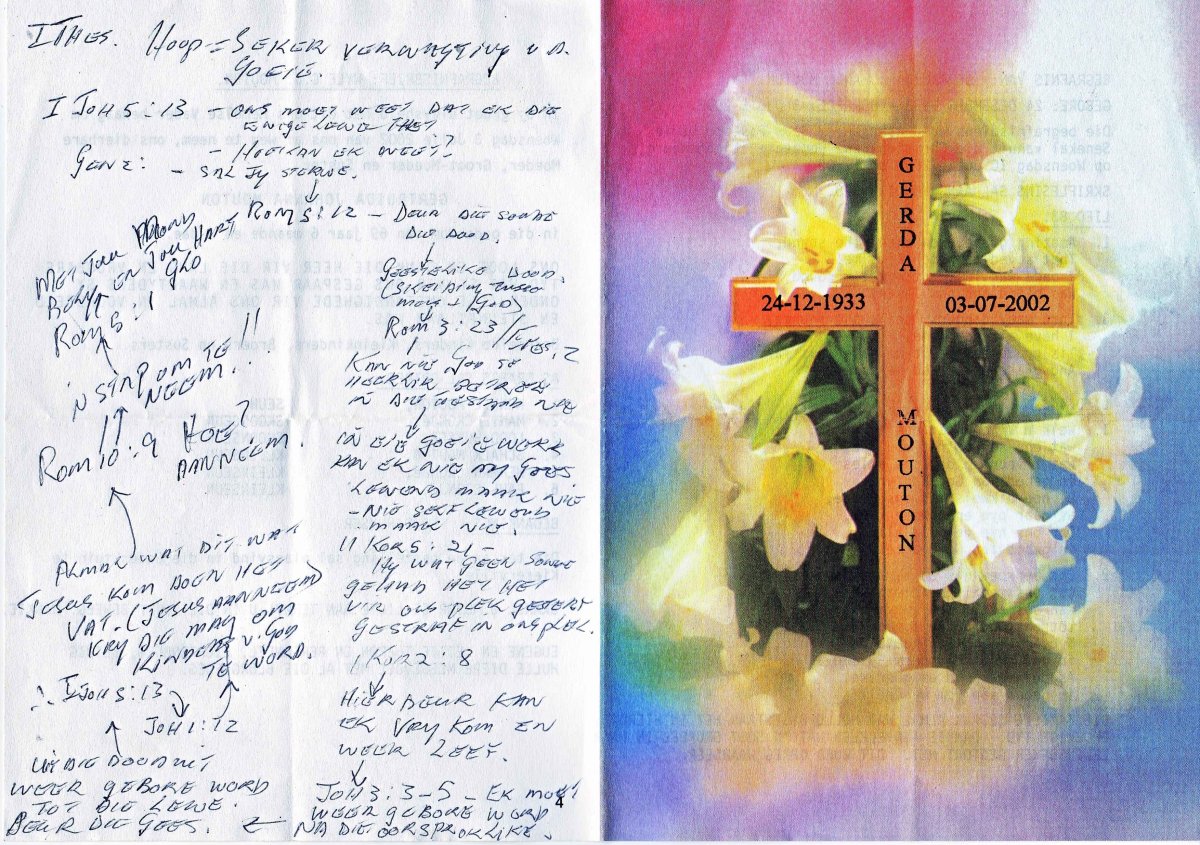 I THES. HOOP = SEKER VERWAGTING V.D.
GOEIE.
I JOH 5:13 - ONS MOET WEET DAT EK DIE
EWIGE LEWE HET
- HOE KAN EK WEET?
GEN 2: - SAL JY STERWE.
ROM 5:12 - DEUR DIE SONDE
DIE DOOD.
GEESTELIKE DOOD.
(SKEIDING TUSSEN
MENS + GOD)
ROM 3:23 / EFES. 2
KAN NIE GOD SE
HEERLIKHEID
IN DIE TOESTAND NIE
IN DIE GOEIE WERK
KAN EK NIE MY GEES
LEWEND MAAK NIE
- NIE SELF LEWEND
MAAK NIE.
II KOR 5:21 -
HY WAT GEEN SONDE
GEHAD HET HET
VIR ONS PLEK
GESTRAF IN ONS PLEK.
KOR 2:8
HIERDEUR KAN
EK VRY KOM EN
WEER LEEF.
JOH 3:3-5 - EK MOET
WEER GEBORE WORD
NA DIE OORSPRONKLIKE.
4
UIT DIE DOOD UIT
WEER GEBORE WORD
TOT DIE LEWE.
DEUR DIE GEES.
∴ I JOH 5:13
JOH 1:12
WAT DIT WAT
JESUS KOM DOEN HET
VAT. (JESUS AANNEEM)
KRY DIE MAG OM
KINDERS V. GOD
TE WORD.
ROM 10:9 HOE?
AANNEEM.
'N STAP OM TE
NEEM.!!
ROM 5:1
MET JOU MOND
BELY EN JOU HART
GLO
GERDA
24-12-1933 03-07-2002
MOUTON